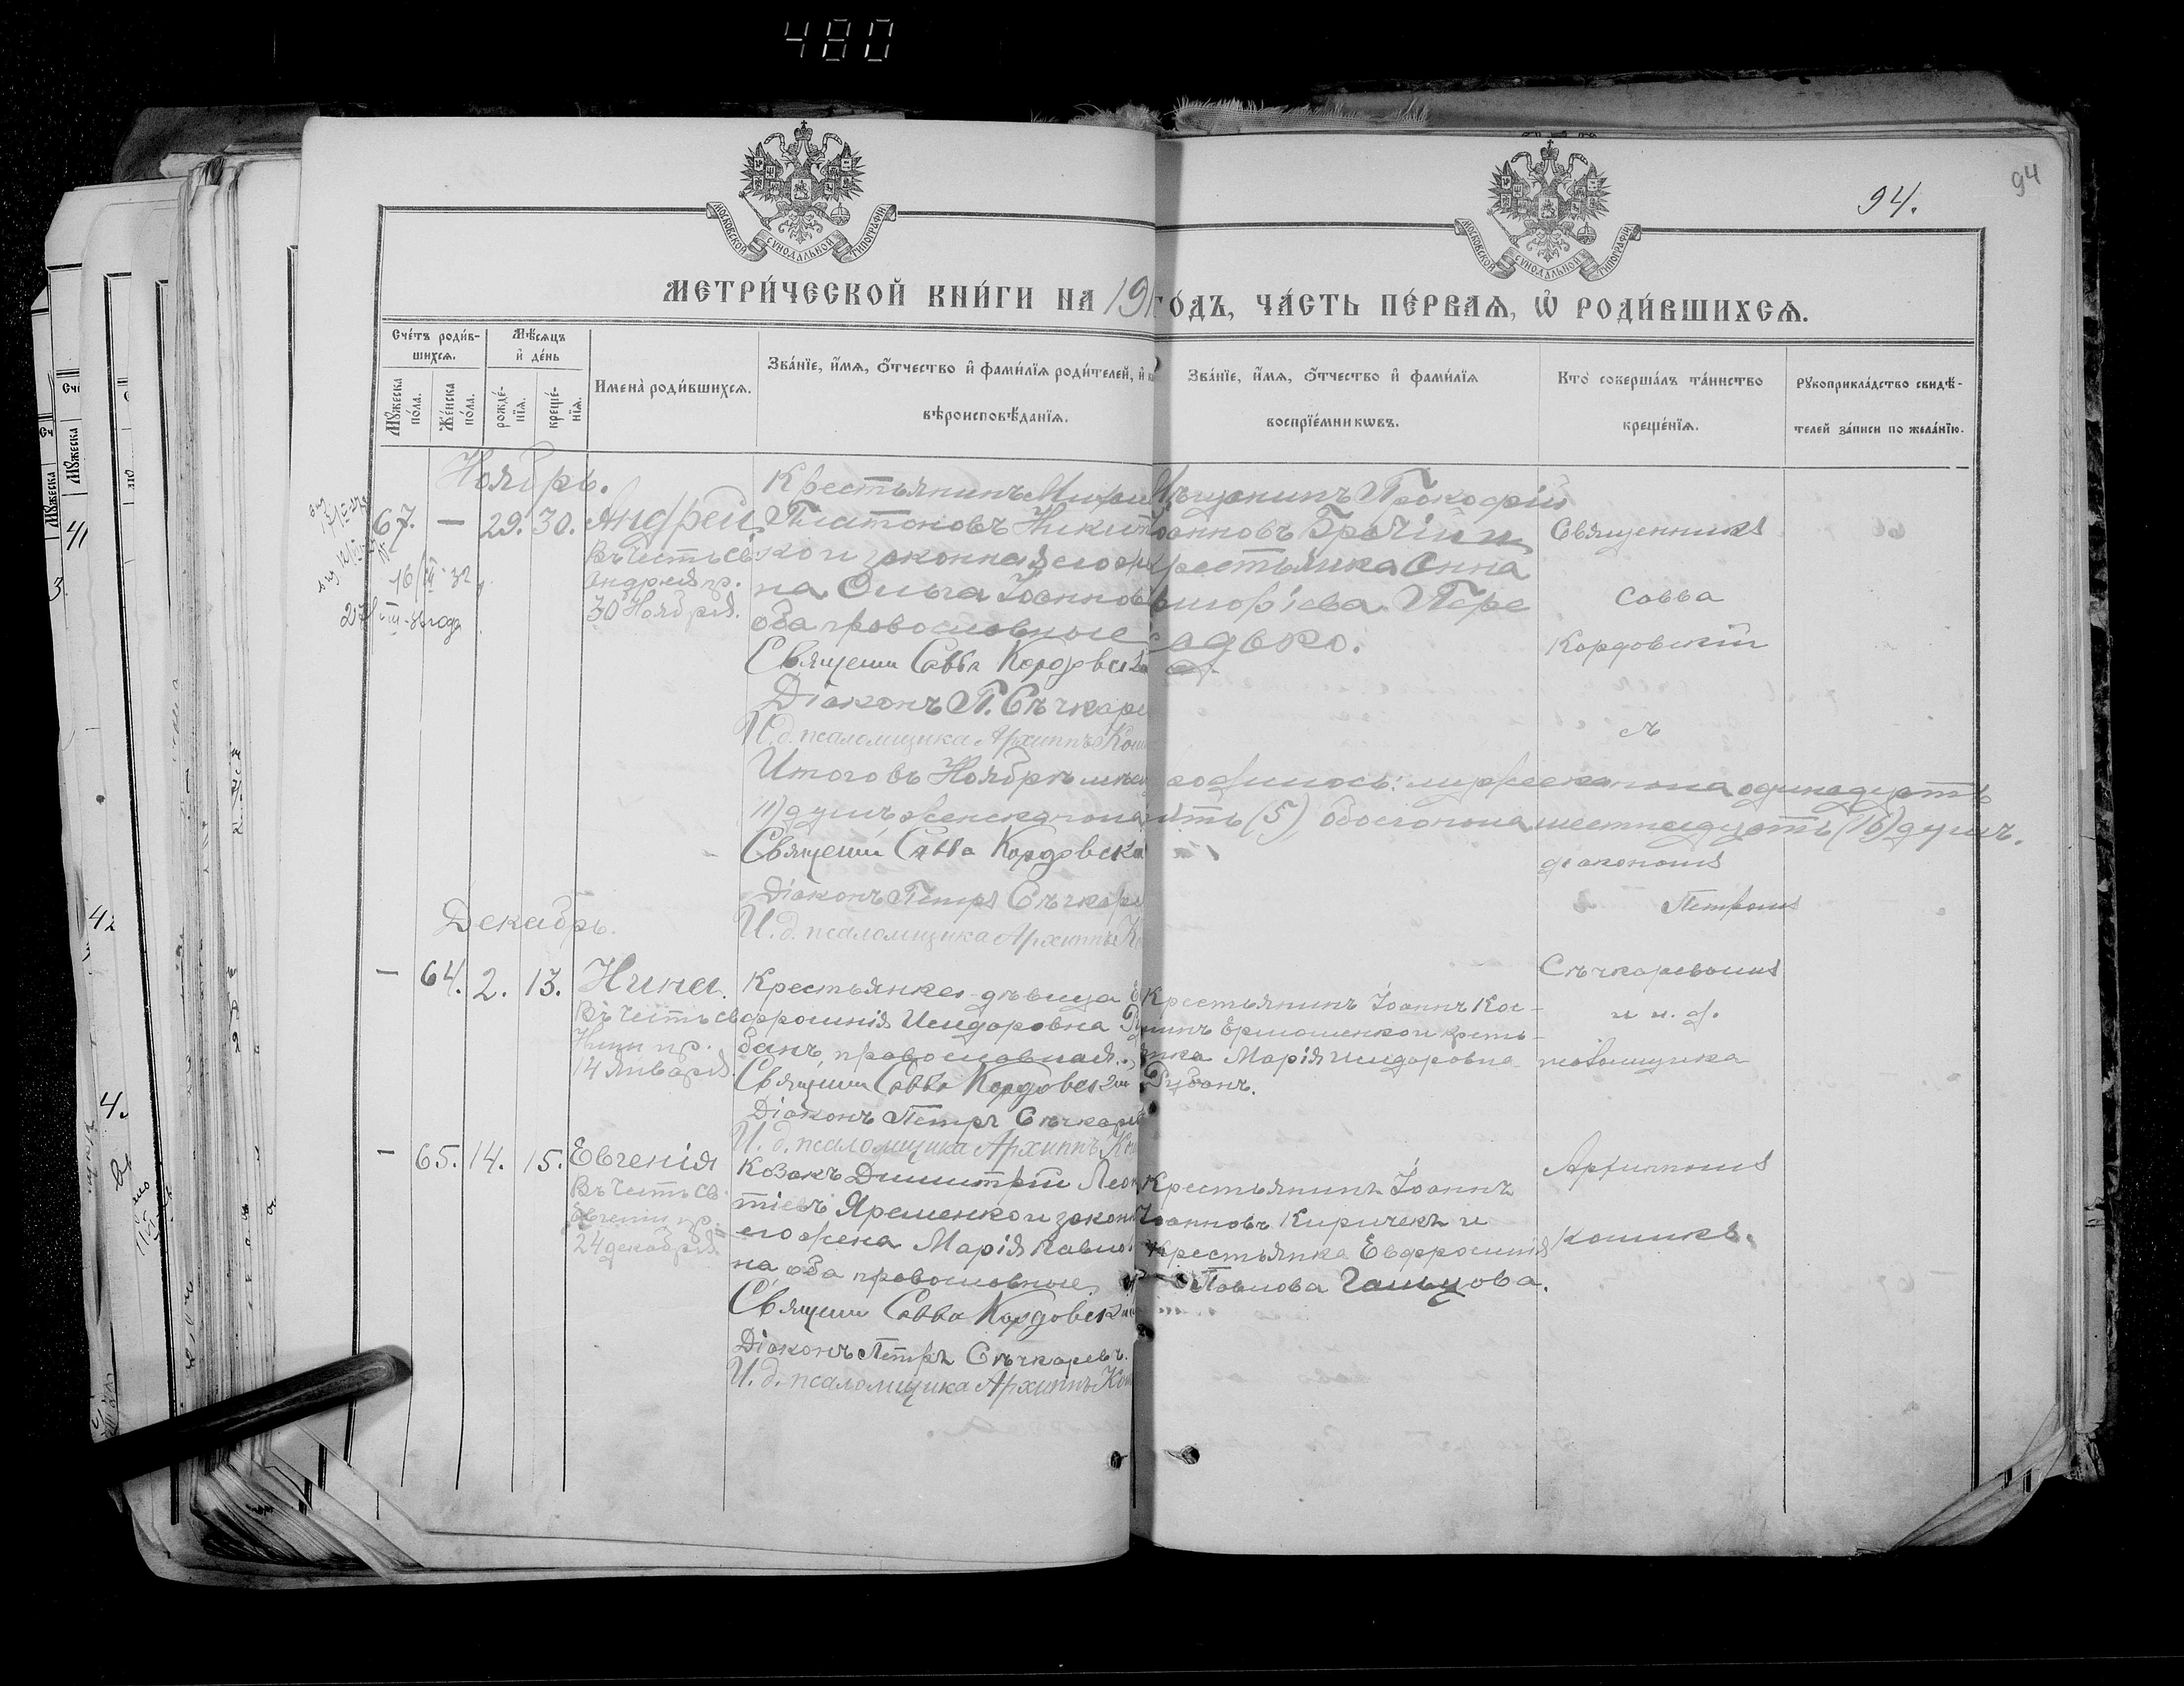 480
94.
94
МОСКОВСКОЙ СѴНОДАЛЬНОЙ ТИПОГРАФІИ
МОСКОВСКОЙ СѴНОДАЛЬНОЙ ТИПОГРАФІИ
МЕТРИ́ЧЕСКОЙ КНИ́ГИ НА 191 ГО́ДЪ, ЧА́СТЬ ПЕ́РВАѦ, Ѡ҆ РОДИ́ВШИХСѦ.
Сче́тъ роди́в-
шихсѧ.
Мꙋжеска по́ла.
Же́нска по́ла.
Мѣ́сѧцъ
и҆ де́нь
рожде́-
нїѧ.
креще́-
нїѧ.
Имена̀ роди́вшихсѧ.
Зва́нїе, и҆́мѧ, ѻ҆́тчество и҆ фами́лїѧ роди́телей, и҆
вѣроисповѣ́данїѧ.
Зва́нїе, и҆́мѧ, ѻ҆́тчество и҆ фами́лїѧ
воспрїе́мникѡвъ.
Кто̀ соверша́лъ та́инство
креще́нїѧ.
Рꙋкоприкла́дство свидѣ́-
телей за́писи по жела́нїю.
Ноябрь.
67. — 29. 30. Андрей
Въ честь св.
Андрея пр.
30 Ноября.
Крестьянинъ Михаи
Платоновъ Никит
ко и законная его же
на Ольга Іоаннов
оба православные
Священ Савва Кордовскі
Діаконъ П. Сѣчкаре
И.д. псаломщика Архиппъ Кош
Мѣщанинъ Прокофій
Іоанновъ
крестьянка Анна
Священникъ
Савва
Кордовскій
съ
Итого въ Ноябрѣ мѣся родилось: мужеска пола одинадцать
11) душъ женска пола пять (5), обоего пола шестнадцать (16) душъ.
Священ Савва Кордовскі
Діаконъ Петръ Сѣчкаре
И.д. псаломщика Архиппъ К
діакономъ
Петромъ
Сѣчкаревымъ
и и. д.
псаломщика
Архиппомъ
Кошикъ.
Декабрь.
— 64. 2. 13. Нина.
Въ честь св.
Нины пр.
14 Января.
Крестьянка дѣвица Е
фросинія Исидоровна Ру
банъ, православная.
Священ Савва Кордовскій
Діаконъ Петръ Сѣчкарев
И.д. псаломщика Архиппъ Кош
Крестьянинъ Іоаннъ Кос-
минъ Ермоленко и кресть-
янка Марія Исидоровна
Рубанъ.
— 65. 14. 15. Евгенія
Въ честь св.
Евгеніи пр.
24 декабря.
Козакъ Димитрій Леон
тіевъ Яременко и законн
его жена Марія Павлов
на оба православные
Священ Савва Кордовскій
Діаконъ Петръ Сѣчкаревъ.
И.д. псаломщика Архиппъ Кош
Крестьянинъ Іоаннъ
Іоанновъ Киричекъ и
крестьянка Евфросинія
Павлова Гальцова.